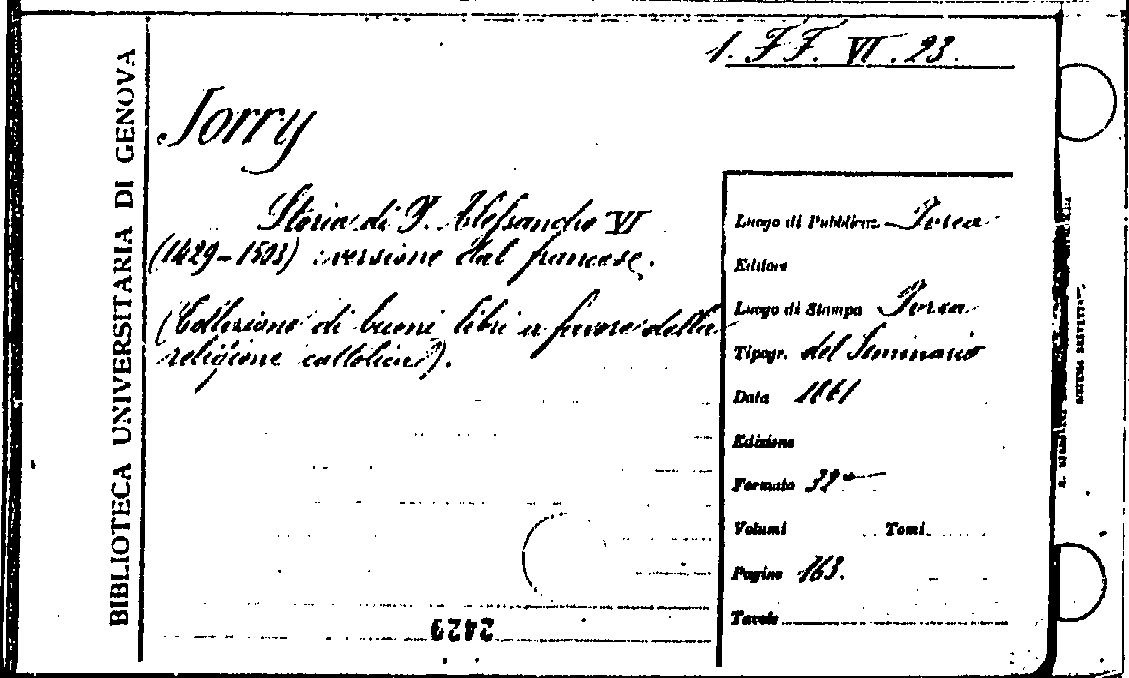 1. FF. VI. 23.
BIBLIOTECA UNIVERSITARIA DI GENOVA
Jorry
Storia di P. Alessandro VI
(1429-1503) : versione dal francese.
(Collezione di buoni libri a favore della
religione cattolica).
Luogo di Pubblicaz.
Editore
Luogo di Stampa
Tipogr. del Seminario
Data 1861
Edizione
Formato 32°
Volumi Tomi
Pagine 163.
Tavole
2429